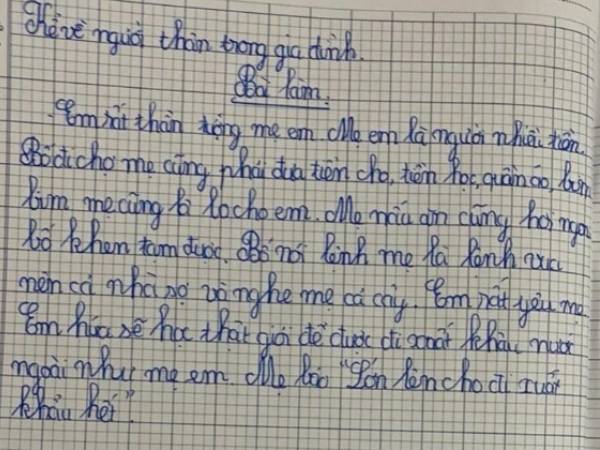 Kể về người thân trong gia đình.
Bài làm.
Em rất thần tượng mẹ em. Mẹ em là người nhiều tiền.
Bố đi chợ mẹ cũng phải đưa tiền cho, tiền học, quần áo, bim
bim mẹ cũng lo cho em. Mẹ nấu ăn cũng hơi ngon
bố khen tạm được. Bố nói lệnh mẹ là lệnh vua
nên cả nhà sợ và nghe mẹ cả cây. Em rất yêu mẹ
Em hứa sẽ học thật giỏi để được đi xoất khẩu nước
ngoài như mẹ em. Mẹ bảo "Lớn lên cho đi xuất
khẩu hết"